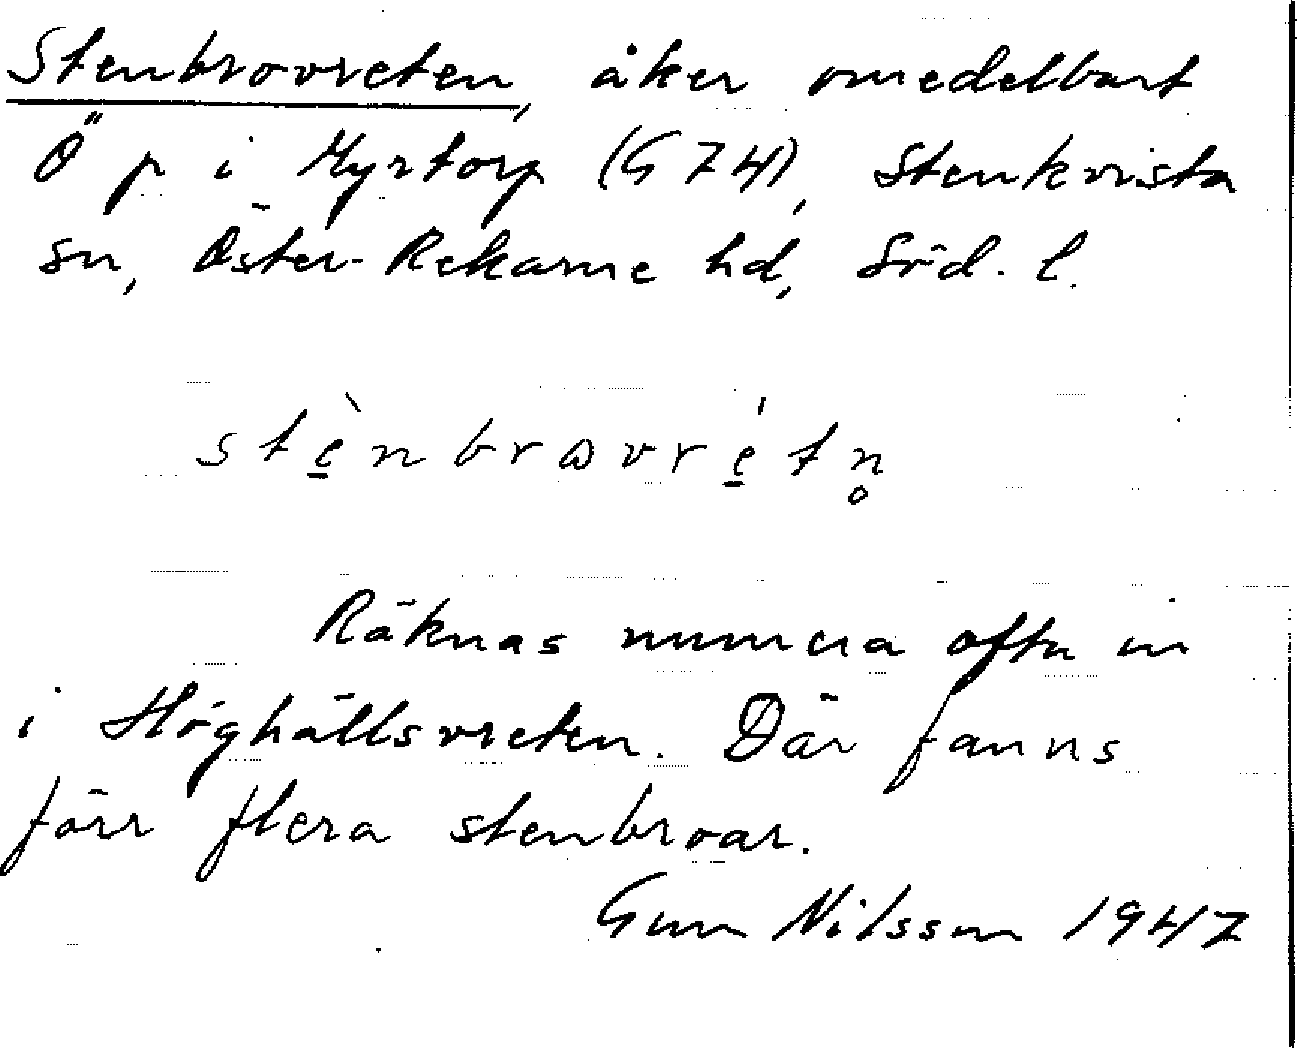 Stenbrovreten, åker omedelbart
Ö p i Myrtorp (G 74), Stenkvista
sn, Öster-Rekarne hd, Söd. l.
stè̱nbrɷvré̱tn̥
Räknas numera ofta in
i Höghällsvreten. Där fanns
förr flera stenbroar.
Gun Nilsson 1947